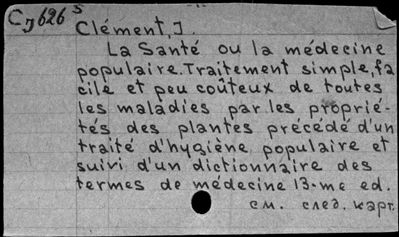 Сɱ626 S
Clément, J.
La Santé ou la médecine
populaire. Traitement simple, fa
cile et peu coûteux de toutes
les maladies par les proprié-
tés des plantes précédé d'un
traité d'hygiène populaire et
suivi d'un dictionnaire des
termes de médecine 13-me ed.
см. след. карт.